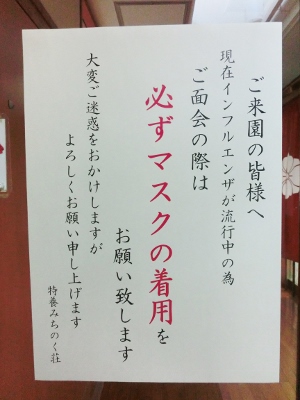 ご来園の皆様へ
現在インフルエンザが流行中の為
ご面会の際は
必ずマスクの着用を
お願い致します
大変ご迷惑をおかけしますが
よろしくお願い申し上げます
特養みちのく荘